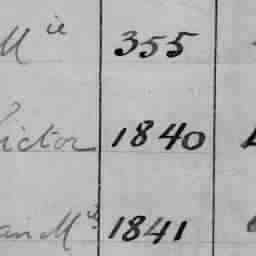 Mie 355
ictor 1840
an Mie 1841